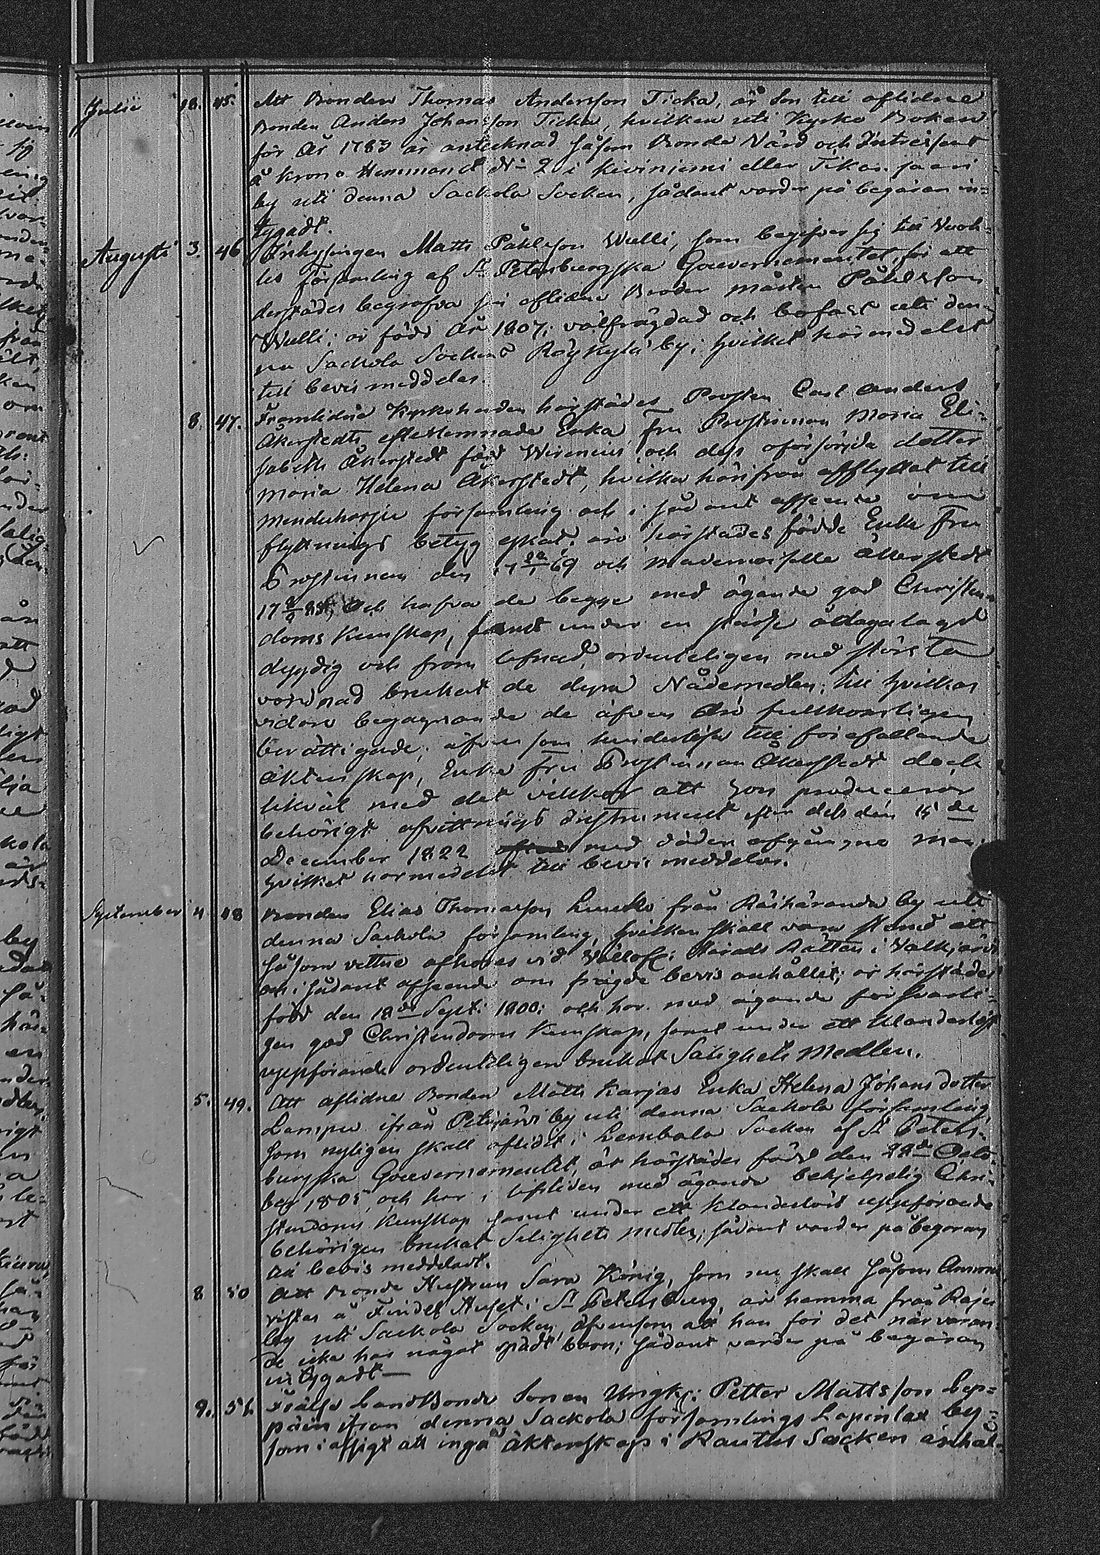 Julii 18. 45. Att Bonden Thomas Andersson Ticka, är Son till aflidne
Bonden Anders Johansson Ticka, hvilken uti Kyrko Boken
för År 1783 är antecknad såsom Bonde Närd och
å Krono Hemmanet No 2 i Kiviniemi eller Tikansaari
by uti denna Sackola Socken, sådant varder på begäran in-
tygadt.
Augusti 3. 46 Inhysingen Matts Påhlsson Wulli, som begifver sig till Wuoh-
les församling af St Petersburgska Gouvernementet, för att
derstädes begrafva sin aflidne Broder Mårten Påhlsson
Wulli; är född år 1807; välfrägdad och bofast uti den-
na Sackola Sockens Röykylä by; hvilket härmedelst
till bevis meddelas.
8. 47. Framlidne Kyrkoherden härstädes Prosten Carl Anders
Åkerstedts efterlemnade Enka Fru Prostinnan Maria Eli-
sabeth Åkerstedt född Wirenius och dess oförsörjda dotter
Maria Helena Åkerstedt, hvilka härifrån afflyttat till
Menduharju församling och i sådant afseende om
flyttnings betyg äskat, äro härstädes födde Enke Fru
Prostinnan den 69 och Mademoiselle Åkerstedt
17 och hafva de begge med ägande god Christen-
doms Kunskap, samt under en städse ådagalagd
dygdig och from lefnad, ordenteligen med största
vördnad brukat de dyra Nådemedlen; till hvilkas
vidare begagnande de äfven äro fullkomligen
berättigade; äfvensom hinderlösa till förefallande
äktenskap, Enke Fru Prostinnan Åkerstedt dock
likväl med det vilkor att hon producerar
behörigt afvittrings Instrument efter dess den 15de
December 1822 med döden afgångne Man,
hvilket härmedelst till bevis meddelas.
September 4 48 Bonden Elias Thomasson Leucko från Räihäranda by uti
denna Sackola församling, hvilken skall vara stämd att
såsom vittne afhöras vid Härads Rätten i Walkjärvi
och i sådant afseende om frägde bevis anhållit; är härstädes
född den 18de Sept: 1800: och har med ägande försvarli-
gen god Christendoms Kunskap, samt under ett klanderlöst
uppförande ordenteligen brukat Salighets Medlen.
5. 49. Att aflidne Bonden Matts Karjas Enka Helena Johans dotter
Lampu ifrån Petäjärvi by uti denna Sackola församling,
som nyligen skall aflidit i Lembala Socken af St Peters-
burgska Gouvernementet, är härstädes född den 28de Octo-
ber 1805, och har i lifstiden med ägande behjelpelig Chri-
stendoms Kunskap samt under ett klanderlöst uppförande
behörigen brukat Salighets medlen, sådant varder på begäran
till bevis meddeladt.
8 50 Att Bonde Hustrun Sara König, som nu skall såsom Amma
vistas å Findel Huset i St Petersburg, är hemma från Raju
by uti Sackola Socken, äfvensom att hon för det närvaran-
de icke har något spädt barn; sådant varder på begäran
intygadt
9. 51. Frälse Landbonde Sonen Ungk: Petter Mattsson Lep-
päin ifrån denna Sackola församlings Lapinlax by
som i afsigt att ingå äktenskap i Rautus Socken anhål-